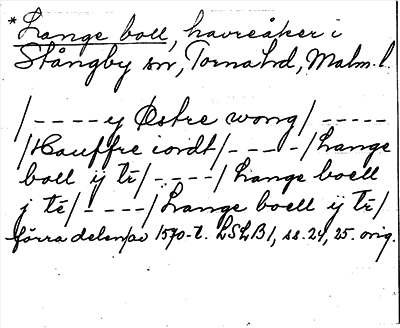 *Lange boll, havreåker i
Stångby sn, Torna hd, Malm. l.
/----ij Østre wong/-----
/Hauffre iordt/-----/Lange
boll ij tē/----/Lange boell
j tē/----/Lange boell ij tē/
förra delen av 1570-t. LSLB1, ss. 24, 25. orig.